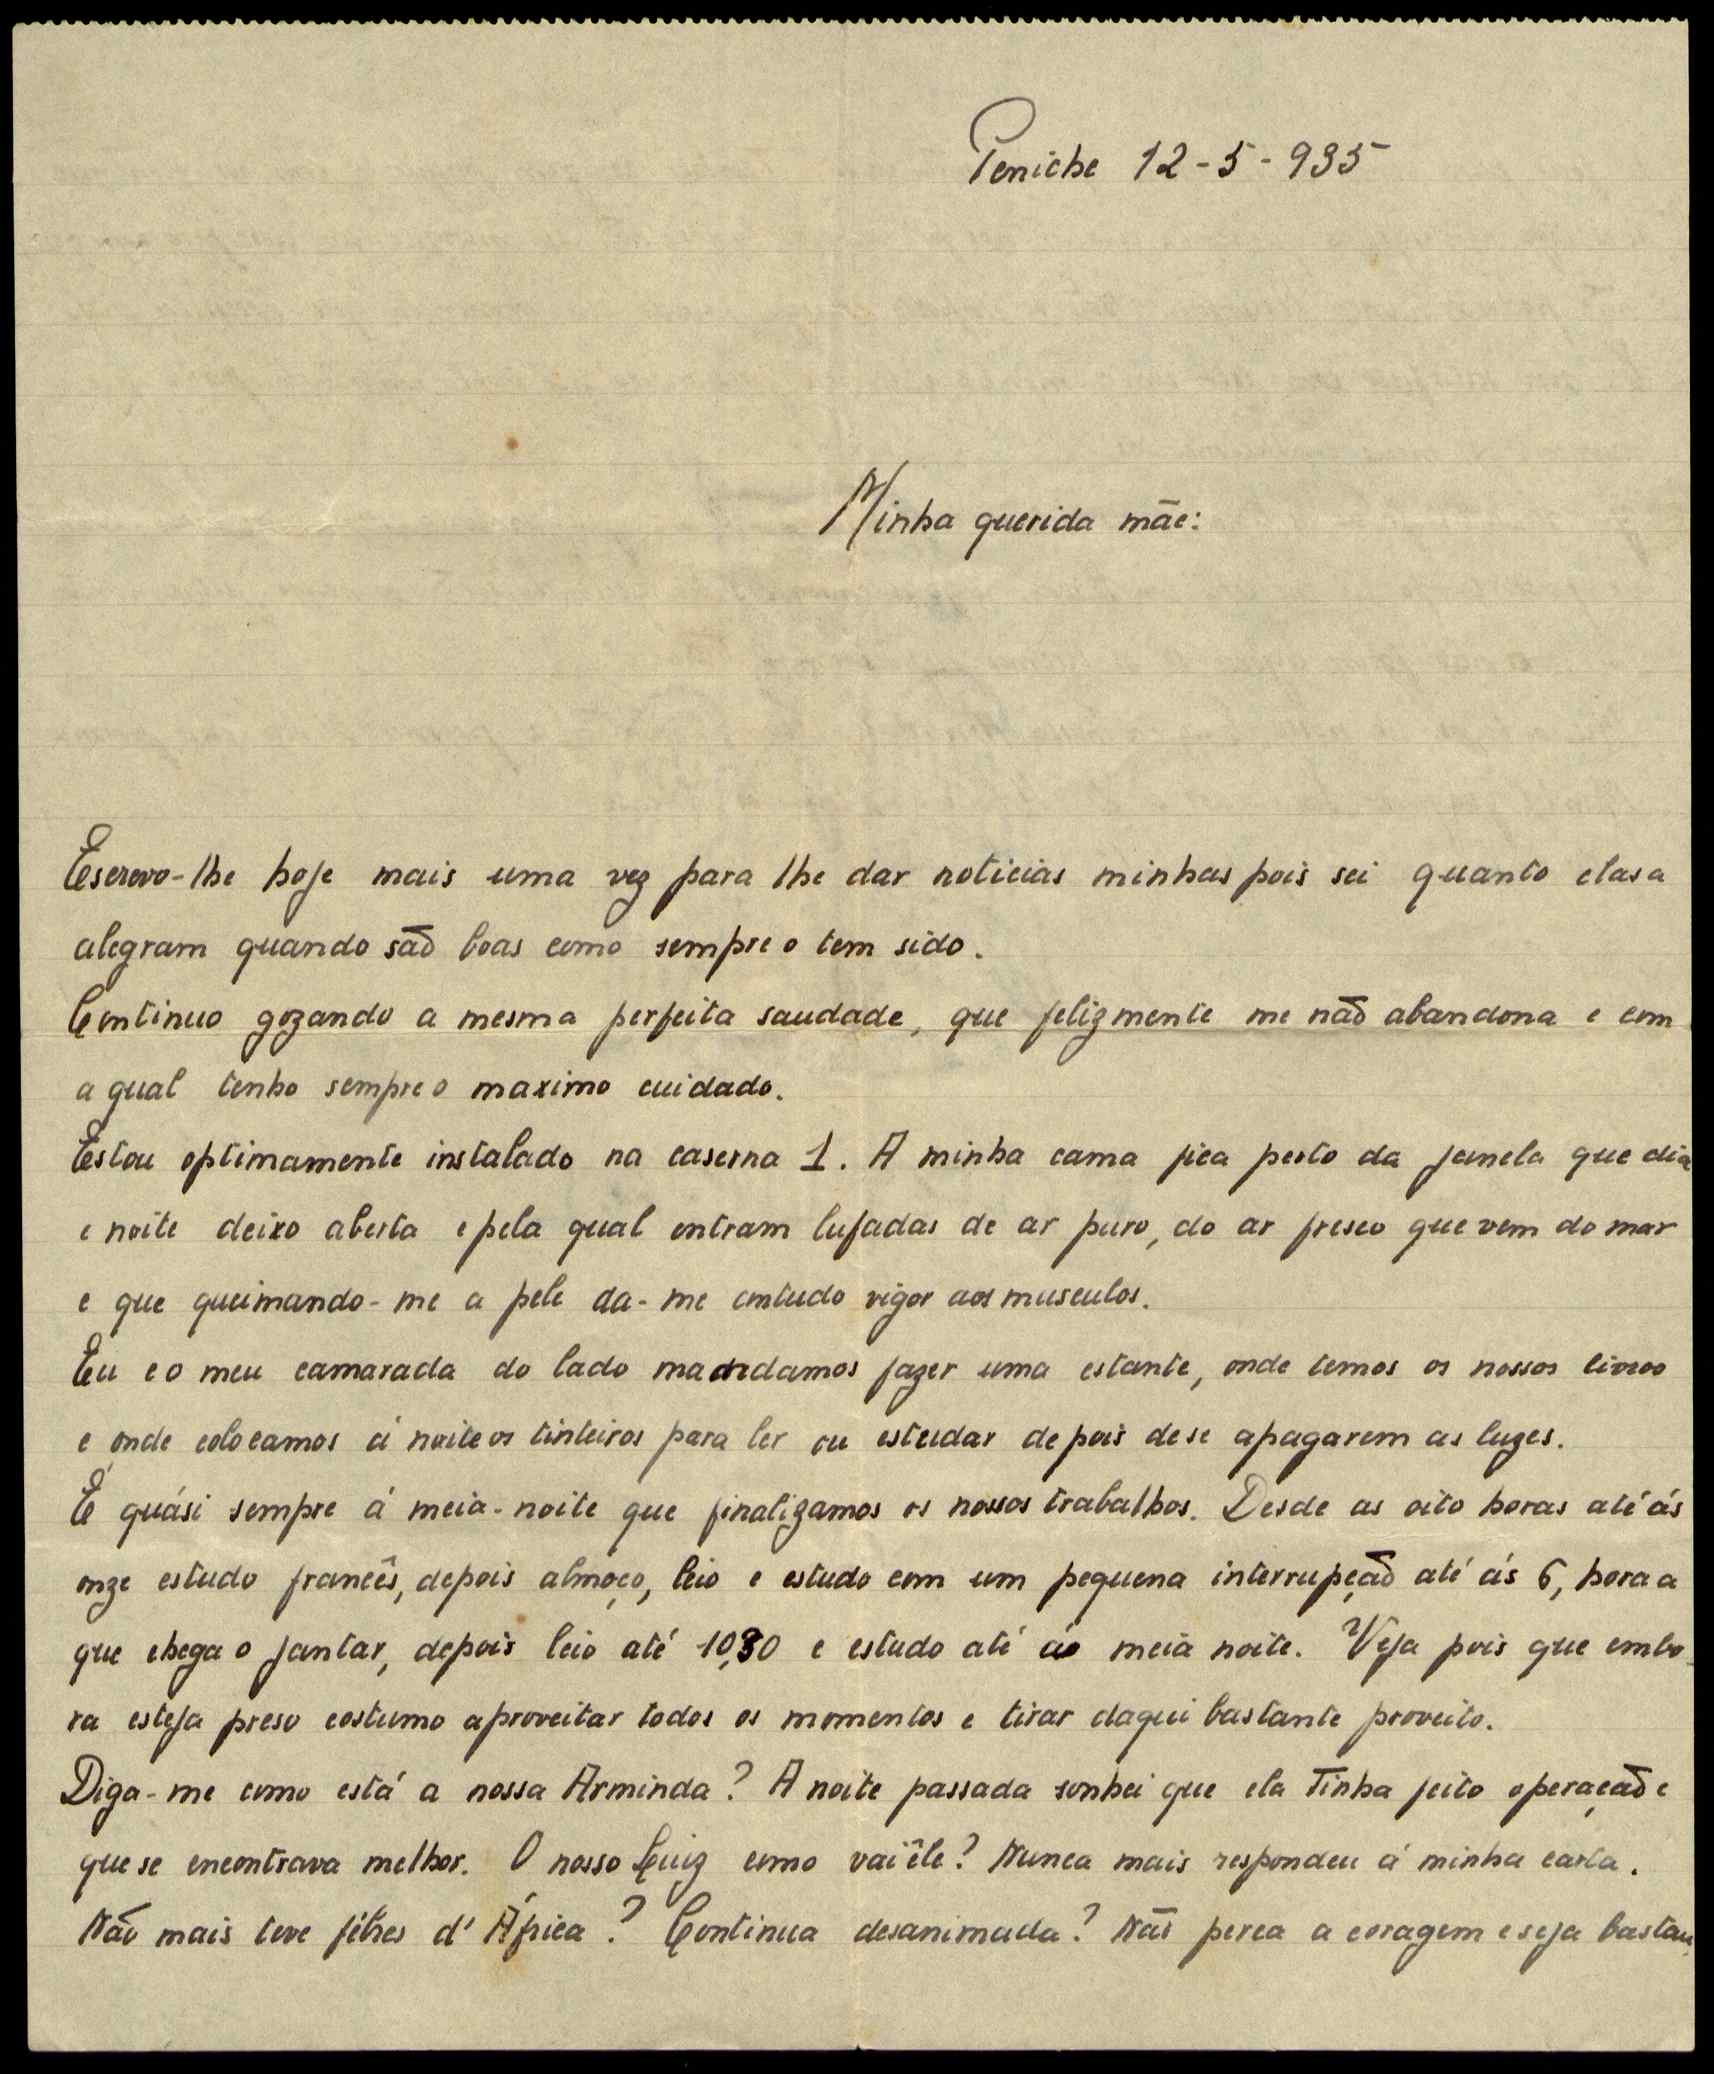 Peniche 12-5-935
Minha querida mãe:
Escrevo-lhe hoje mais uma vez para lhe dar noticias minhas pois sei quanto elas a
alegram quando são boas como sempre o tem sido.
Continuo gozando a mesma perfeita saudade, que felizmente me não abandona e com
a qual tenho sempre o maximo cuidado.
Estou optimamente instalado na caserna 1. A minha cama fica perto da janela que dia
e noite deixo aberta e pela qual entram lufadas de ar puro, do ar fresco que vem do mar
e que queimando-me a pele da-me contudo vigor aos musculos.
Eu e o meu camarada do lado mandamos fazer uma estante, onde temos os nossos livros
e onde colocamos á noite os tinteiros para ler ou estudar depois de se apagarem as luzes.
É quási sempre á meia-noite que finalizamos os nossos trabalhos. Desde as oito horas até ás
onze estudo francês, depois almoço, leio e estudo com um pequena interrupção até ás 6, hora a
que chega o jantar, depois leio até 10,30 e estudo até áo meia noite. Veja pois que embo-
ra esteja preso costumo aproveitar todos os momentos e tirar daqui bastante proveito.
Diga-me como está a nossa Arminda? A noite passada sonhei que ela tinha feito operação e
que se encontrava melhor. O nosso Luiz como vai êle? Nunca mais respondeu á minha carta.
Não mais teve fébres d'África? Continua desanimada? Não perca a coragem e seja bastan